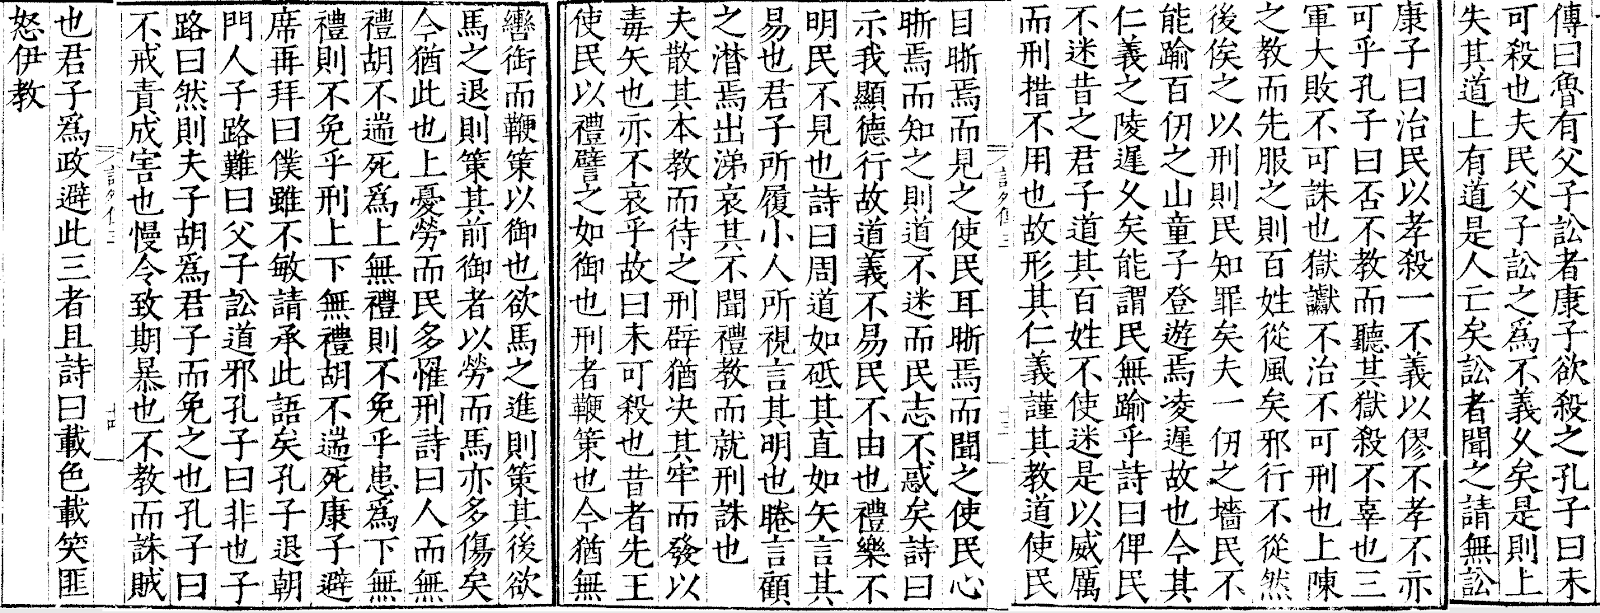 傳曰魯有父子訟者康子欲殺之孔子曰未
可殺也夫民父子訟之爲不義久矣是則上
失其道上有道是人亡矣訟者聞之請無訟
康子曰治民以孝殺一不義以僇不孝不亦
可乎孔子曰否不教而聽其獄殺不辜也三
軍大敗不可誅也獄讞不治不可刑也上陳
之教而先服之則百姓從風矣邪行不從然
後俟之以刑則民知罪矣夫一仞之墻民不
能踰百仞之山童子登遊焉凌遲故也今其
仁義之陵遲久矣能謂民無踰乎詩曰俾民
不迷昔之君子道其百姓不使迷是以威厲
而刑措不用也故形其仁義謹其教道使民
目晣焉而見之使民耳晣焉而聞之使民心
晣焉而知之則道不迷而民志不惑矣詩曰
示我顯德行故道義不易民不由也禮樂不
明民不見也詩曰周道如砥其直如矢言其
易也君子所履小人所視言其明也睠言顧
之潸焉出涕哀其不聞禮教而就刑誅也
夫散其本教而待之刑辟猶决其牢而發以
毒矢也亦不哀乎故曰未可殺也昔者先王
使民以禮譬之如御也刑者鞭策也今猶無
轡銜而鞭策以御也欲馬之進則策其後欲
馬之退則策其前御者以勞而馬亦多傷矣
今猶此也上憂勞而民多罹刑詩曰人而無
禮胡不遄死爲上無禮則不免乎患爲下無
禮則不免乎刑上下無禮胡不遄死康子避
席再拜曰僕雖不敏請承此語矣孔子退朝
門人子路難曰父子訟道邪孔子曰非也子
路曰然則夫子胡爲君子而免之也孔子曰
不戒責成害也慢令致期暴也不教而誅賊
也君子爲政避此三者且詩曰載色載笑匪
怒伊教